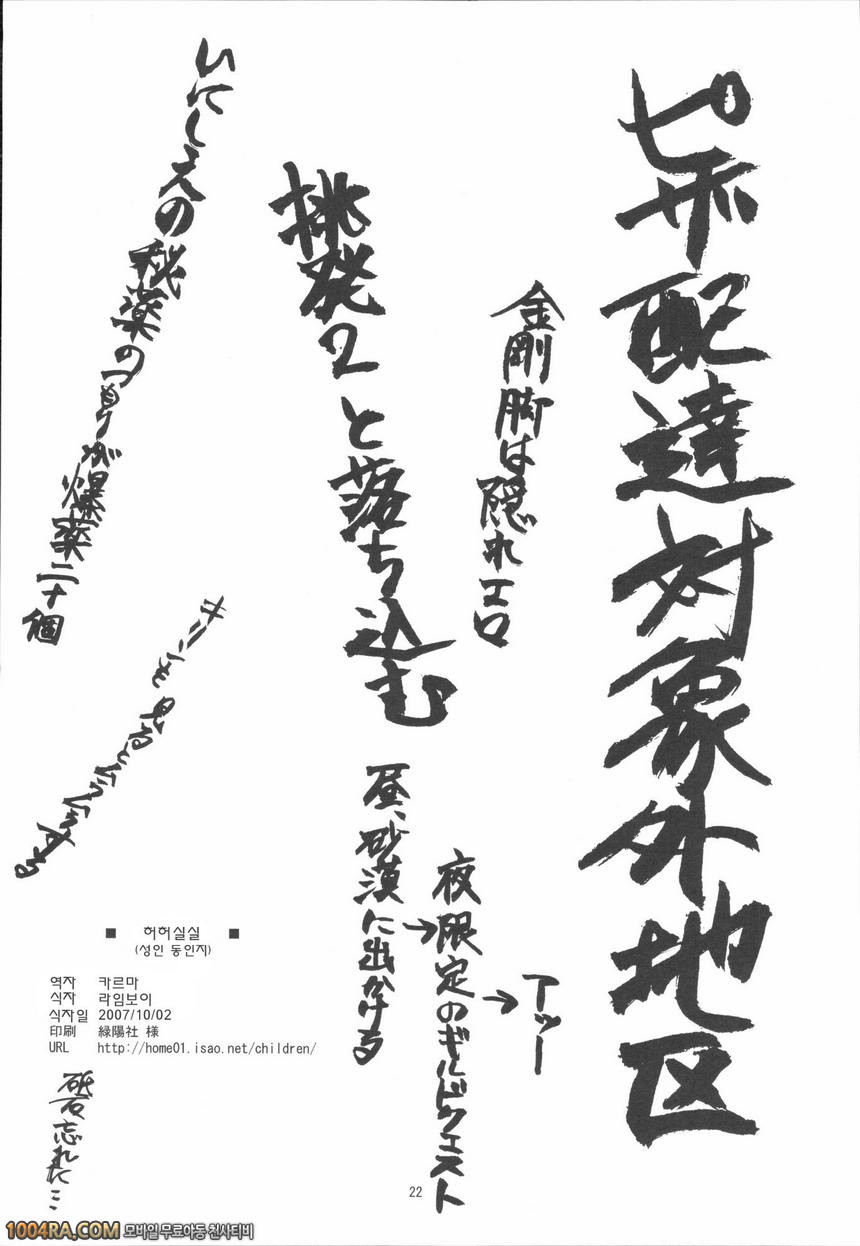 ピザ配達対象外地区
金剛脚は隠れエロ
挑発2と落ち込む
いにしえの秘薬のつもりが爆薬二十個
昼、砂漠に出かける
→夜限定のギルドクエスト
→アッー
■ 허허실실 ■
(성인 동인지)
역자 카르마
식자 라임보이
식자일 2007/10/02
印刷 緑陽社 様
URL http://home01.isao.net/children/
砥石忘れた…
22
1004RA.COM 모바일 무료야동 천사티비